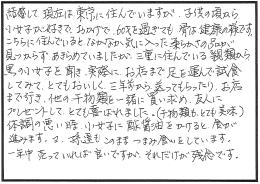 結婚して現在は東京に住んでいますが、子供の頃から
小女子が好きで、おかげで、60代を過ぎても骨は健康の様です。
こちらに住んでいるとなかなか気に入った柔らかさの品が
見つからず、あきらめていましたが、三重に住んでいる親類から
黒の小女子と聞き、実際にお店まで足を運んで試食
してみて、とてもおいしく、三年前から送ってもらったり、お店
まで行き、他の干物類も一緒に買い求め、友人に
プレゼントして、とても喜ばれました。(干物類も、とても美味)
体調の悪い時、小女子に酢醤油をかけると食が
進みます。又、時々そのままつまみ食いをしています。
一年中売っていれば良いですが、それだけが残念です。